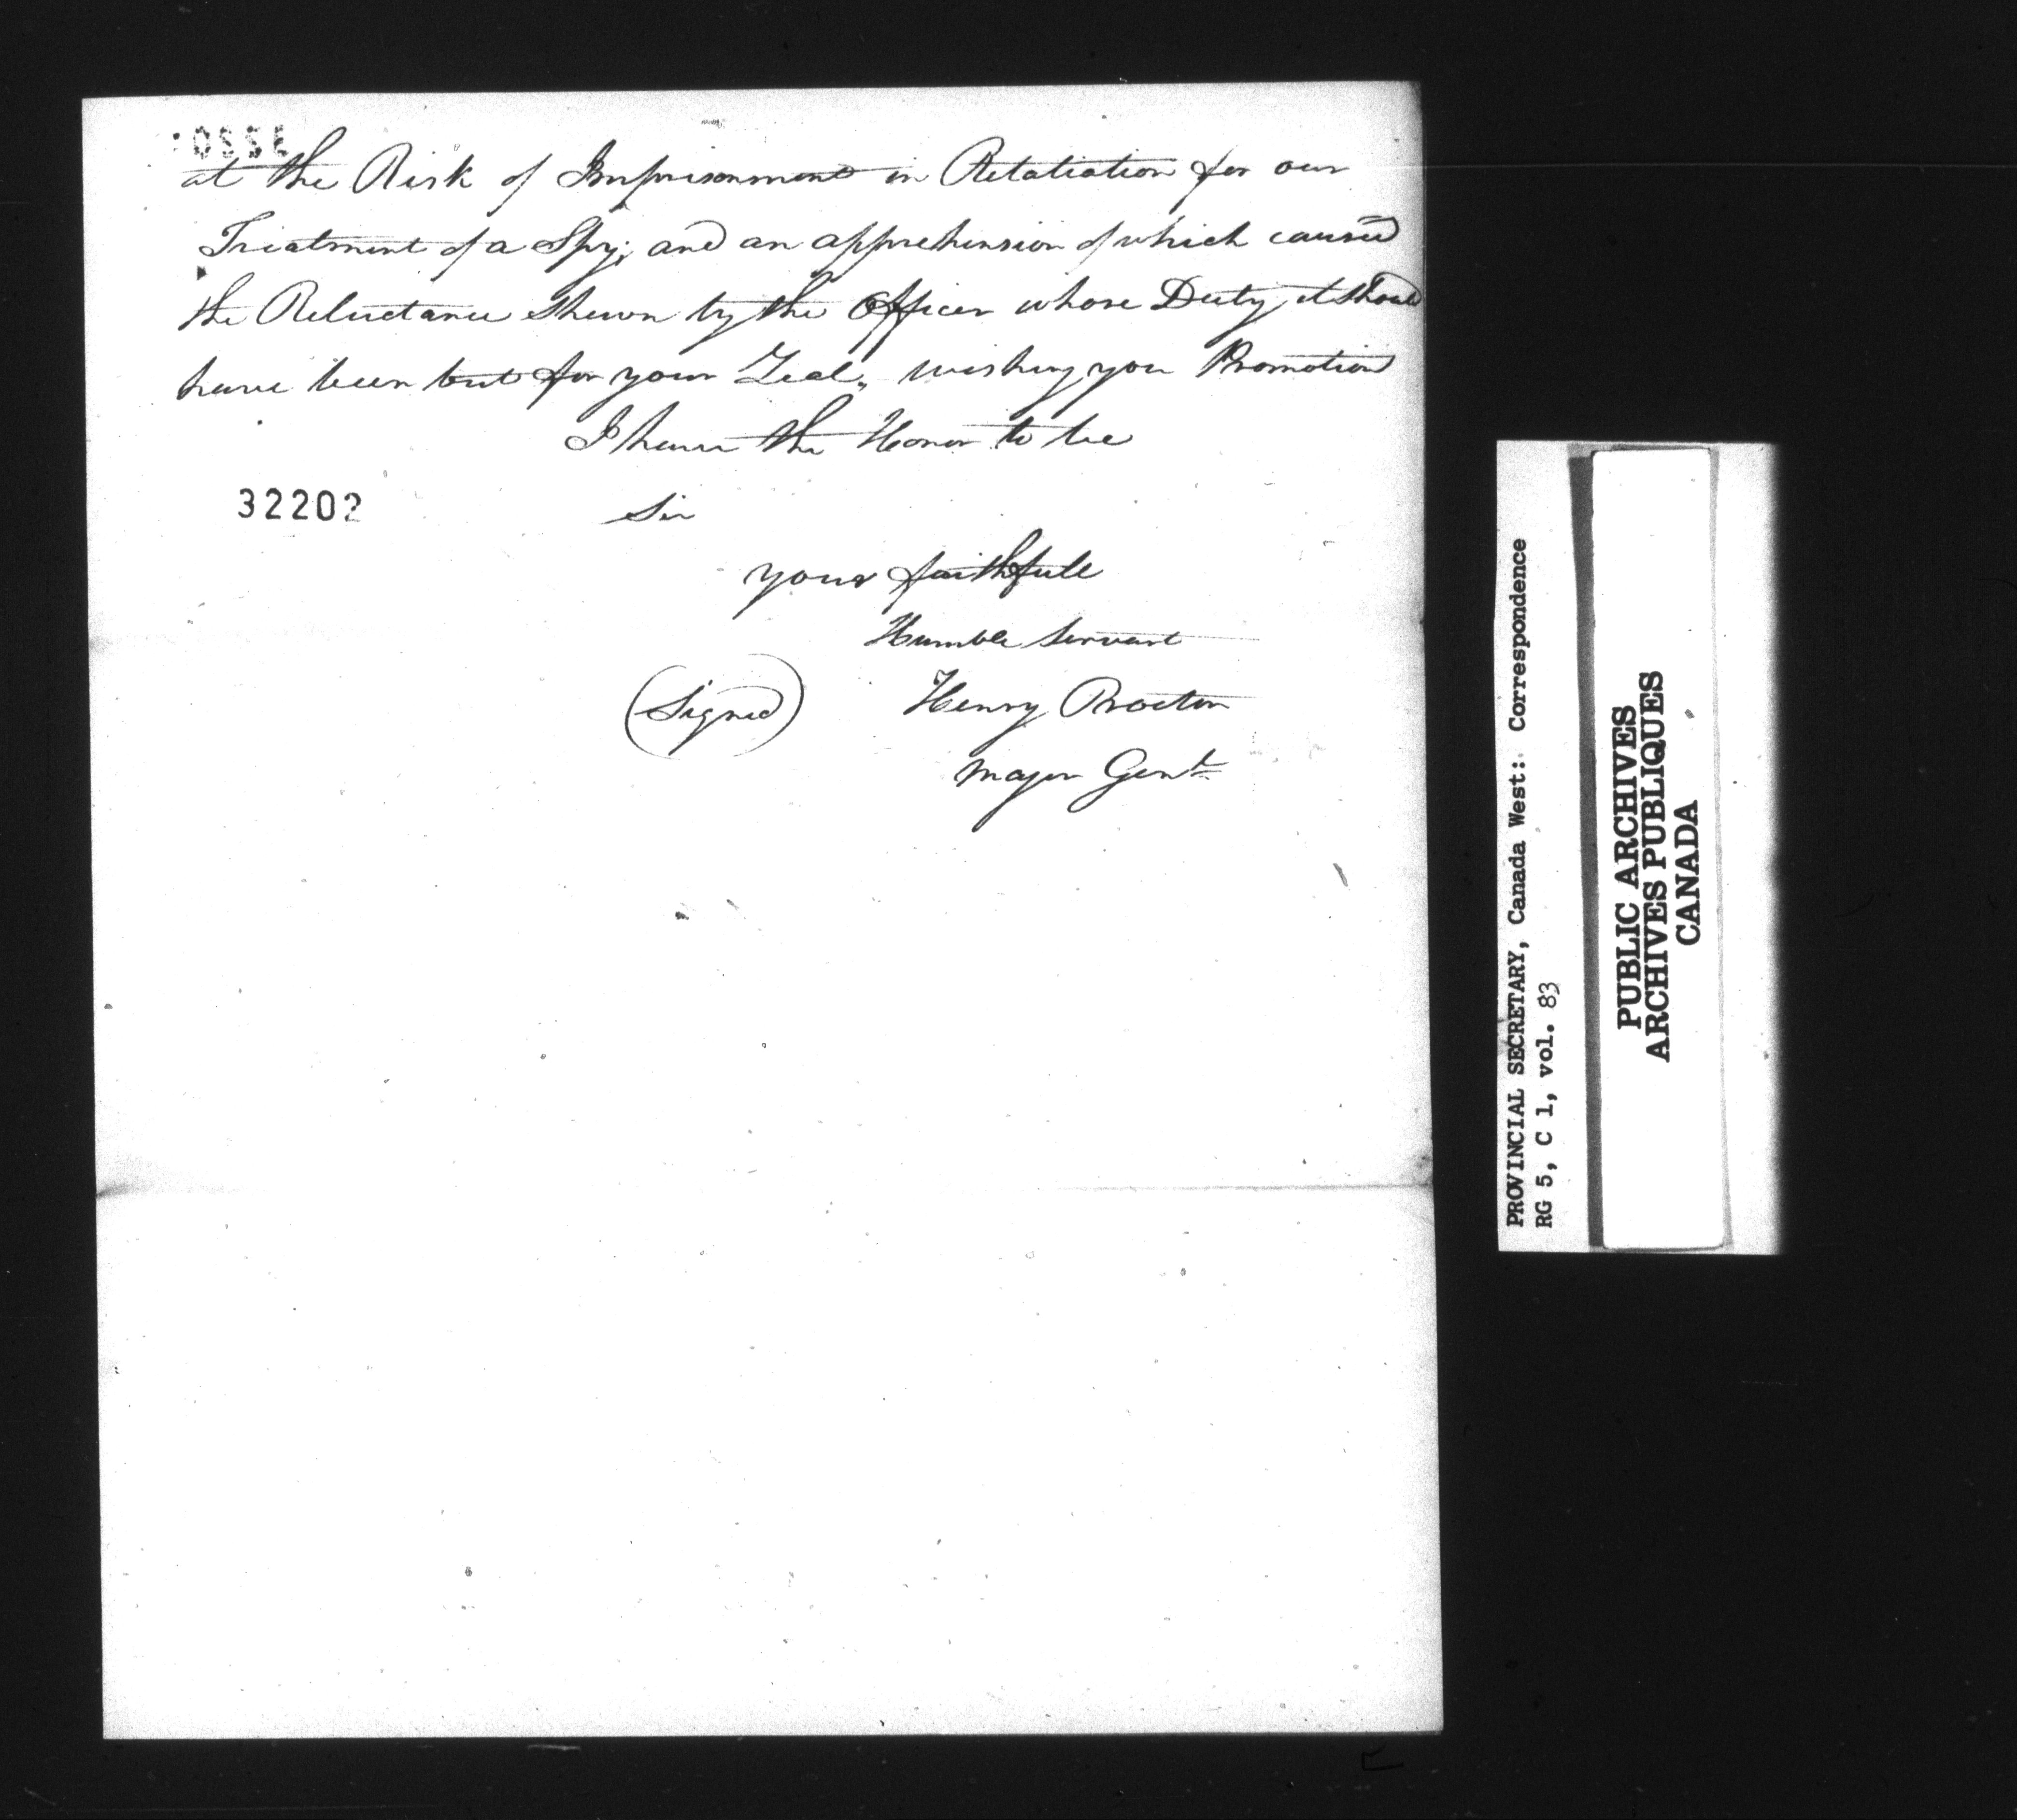 at the Risk of Imprisonment in Retaliation for our
Treatment of a Spy; and an apprehension of which caused
the Reluctance Shewn by the Officer whose Duty it should
have been but for your Zeal, wishing you Promotion
I have the Honor to be
32202
Sir
your faithfull
Humble Servant
(Signed) Henry Procter
Major Genl
PROVINCIAL SECRETARY, Canada West: Correspondence
RG 5, C 1, vol. 83
PUBLIC ARCHIVES
ARCHIVES PUBLIQUES
CANADA